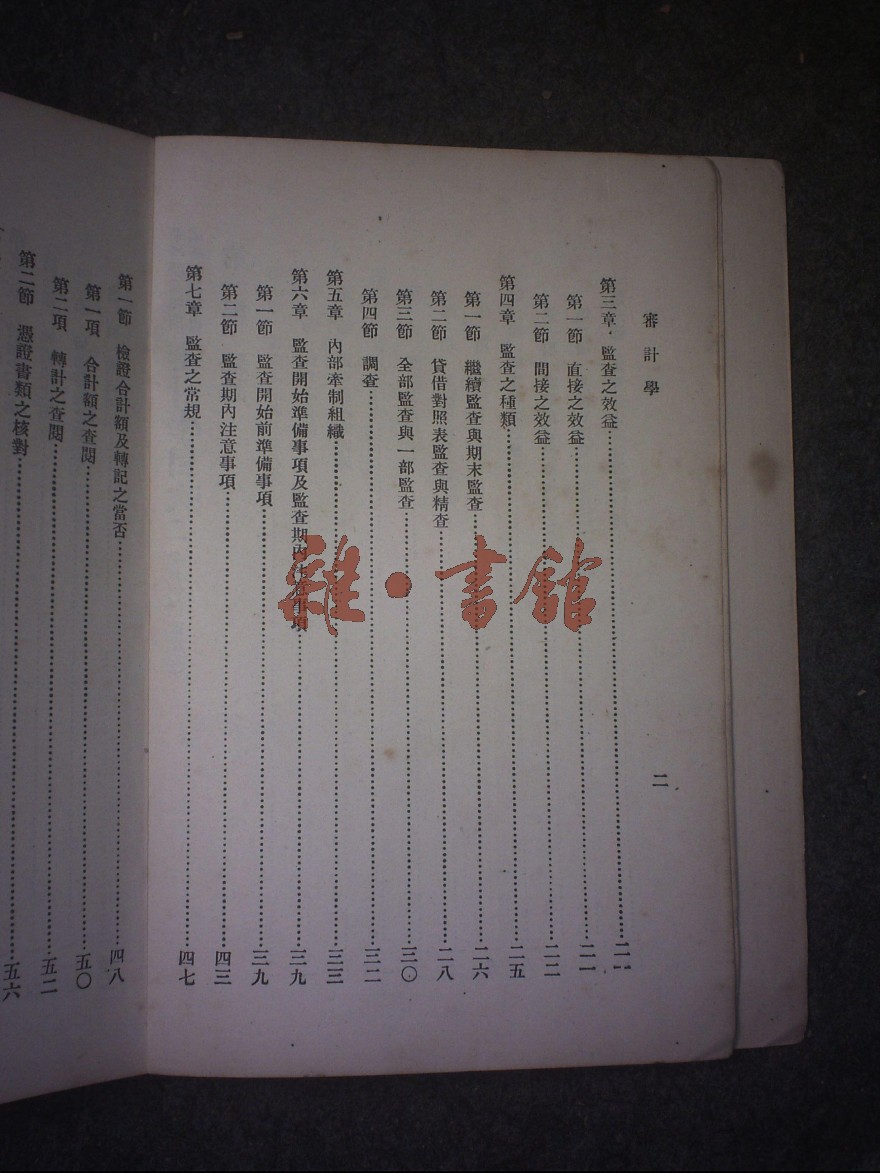 審計學
二
第三章 監查之效益……二一
第一節 直接之效益……二一
第二節 間接之效益……二二
第四章 監查之種類……二五
第一節 繼續監查與期末監查……二六
第二節 貸借對照表監查與精查……二八
第三節 全部監查與一部監查……三〇
第四節 調查……三二
第五章 內部牽制組織……三三
第六章 監查開始準備事項及監查期內注意事項……三九
第一節 監查開始前準備事項……三九
第二節 監查期內注意事項……四三
第七章 監查之常規……四七
第一節 檢證合計額及轉記之當否……四八
第一項 合計額之查閱……五〇
第二項 轉計之查閱……五二
第二節 憑證書類之核對……五六
雜·書館